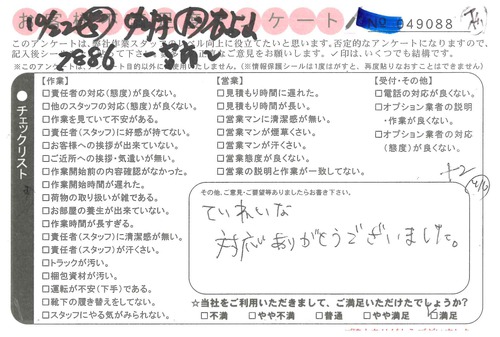 アンケート
No 049088
このアンケートは、弊社作業スタッフのレベル向上に役立てたいと思います。否定的なアンケートになりますので、
※このアンケートは、アンケート目的以外に
(※情報保護シール1度はがすと、再度貼りなおすことはできません)
チェックリスト
【作業】
□責任者の対応(態度)が良くない。
□他のスタッフの対応(態度)が良くない。
□作業を見ていて不安がある。
□責任者(スタッフ)に好感が持てない。
□お客様への挨拶が出来ていない。
□ご近所への挨拶・気遣いが無い。
□作業開始前の内容確認がなかった。
□作業開始時間が遅れた。
□荷物の取り扱いが雑である。
□お部屋の養生が出来ていない。
□作業時間が長すぎる。
□責任者(スタッフ)に清潔感が無い。
□責任者(スタッフ)が汗くさい。
□トラックが汚い。
□梱包資材が汚い。
□運転が不安(下手)である。
□靴下の履き替えをしてない。
□スタッフにやる気がみられない。
【営業】
□見積もり時間に遅れた。
□見積もり時間が長い。
□営業マンに清潔感が無い。
□営業マンが煙草くさい。
□営業マンが汗くさい。
□営業態度が良くない。
□営業の説明と作業が一致してない。
【受付・その他】
□電話の対応が良くない。
□オプション業者の説明
・作業が良くない。
□オプション業者の対応
(態度)が良くない。
その他、ご意見・ご要望等ありましたらお書き下さい。
ていねいな
対応ありがとうございました。
☆当社をご利用いただきまして、ご満足いただけたでしょうか?
□不満 □やや不満 □普通 □やや満足 □満足